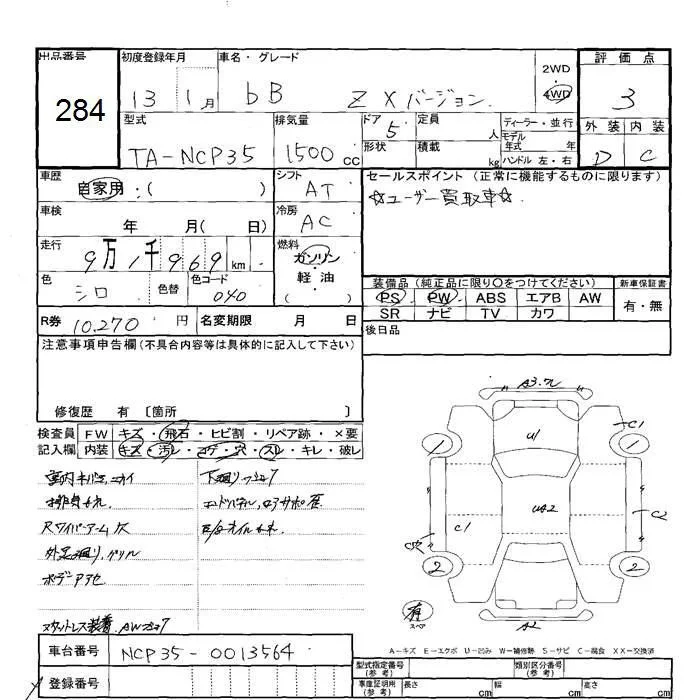 出品番号 284
初度登録年月 13 1月
車名・グレード bB Z Xバージョン
2WD 4WD
評価点 3
外装 D 内装 C
型式 TA-NCP35
排気量 1500 cc
ドア 5 形状
定員 人 積載 kg
ディーラー・並行
モデル年式 年
ハンドル 左・右
車歴 自家用:( )
シフト AT
セールスポイント(正常に機能するものに限ります)
☆ユーザー買取車☆
車検 年 月( 日)
冷房 AC
走行 9万1千969 km
燃料 ガソリン 軽油 ( )
色 シロ 色替 色コード 040
装備品(純正品に限り○をつけてください) 新車保証書
PS PW ABS エアB AW 有・無
SR ナビ TV カワ
R券 10.270 円 名変期限 月 日
後日品
注意事項申告欄(不具合内容等は具体的に記入して下さい)
修復歴 有 〔箇所 〕
検査員 FW キズ・飛石・ヒビ割・リペア跡・×要
記入欄 内装 キズ・汚レ・コゲ・穴・スレ・キレ・破レ
Rワイパーアーム欠
スタットレス装着
A3.ワレ
U1
1 1 C1
UA2
C1 C2
2 2
有 スペア
A2
A-キズ E-エクボ U-凹み W-補修跡 S-サビ C-腐食 XX-交換済
車台番号 NCP35-0013564
登録番号
型式指定番号(参考) 類別区分番号(参考)
車庫証明用(参考) 長さ cm 幅 cm 高さ cm